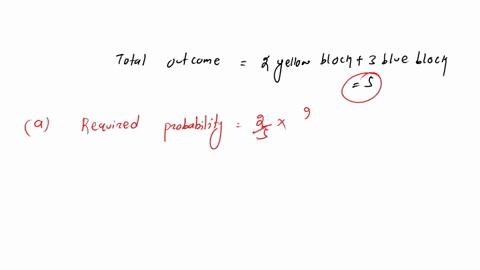 Total outcome = 2 yellow block + 3 blue block
= 5
(a) Required probability = 2/5 ×